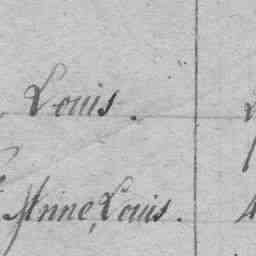 Louis.
Anne, Louis.